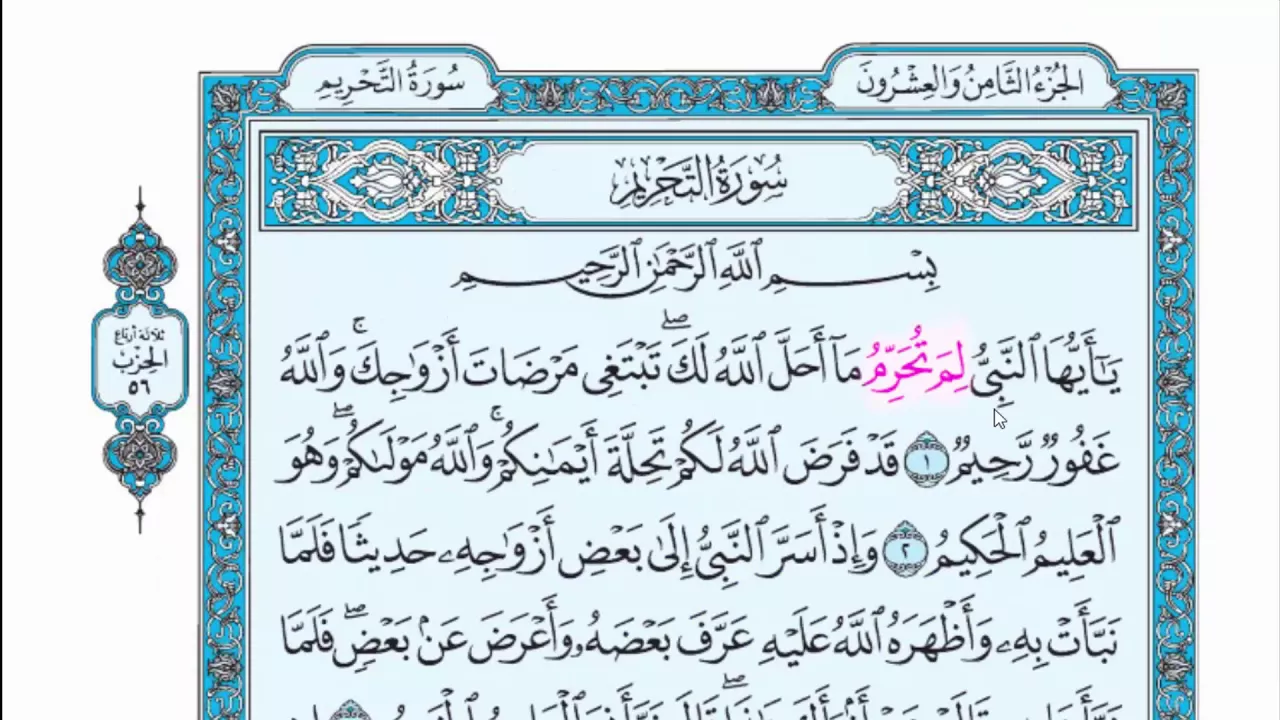 الجُزْءُ الثَّامِنُ وَالعِشْرُونَ
سُورَةُ التَّحْرِيمِ
سُورَةُ التَّحْرِيمِ
بِسْمِ ٱللَّهِ ٱلرَّحْمَٰنِ ٱلرَّحِيمِ
يَٰٓأَيُّهَا ٱلنَّبِىُّ لِمَ تُحَرِّمُ مَآ أَحَلَّ ٱللَّهُ لَكَ ۖ تَبْتَغِى مَرْضَاتَ أَزْوَٰجِكَ ۚ وَٱللَّهُ
غَفُورٌ رَّحِيمٌ ١ قَدْ فَرَضَ ٱللَّهُ لَكُمْ تَحِلَّةَ أَيْمَٰنِكُمْ ۚ وَٱللَّهُ مَوْلَىٰكُمْ ۖ وَهُوَ
ٱلْعَلِيمُ ٱلْحَكِيمُ ٢ وَإِذْ أَسَرَّ ٱلنَّبِىُّ إِلَىٰ بَعْضِ أَزْوَٰجِهِۦ حَدِيثًا فَلَمَّا
نَبَّأَتْ بِهِۦ وَأَظْهَرَهُ ٱللَّهُ عَلَيْهِ عَرَّفَ بَعْضَهُۥ وَأَعْرَضَ عَنۢ بَعْضٍ ۖ فَلَمَّا
ثلاثة أرباع
الحِزْبُ
٥٦